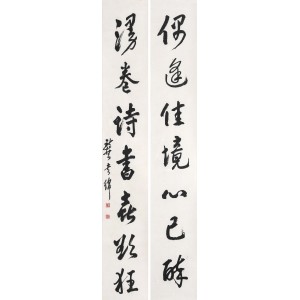 偶逢佳境心已醉
漫卷诗書喜欲狂